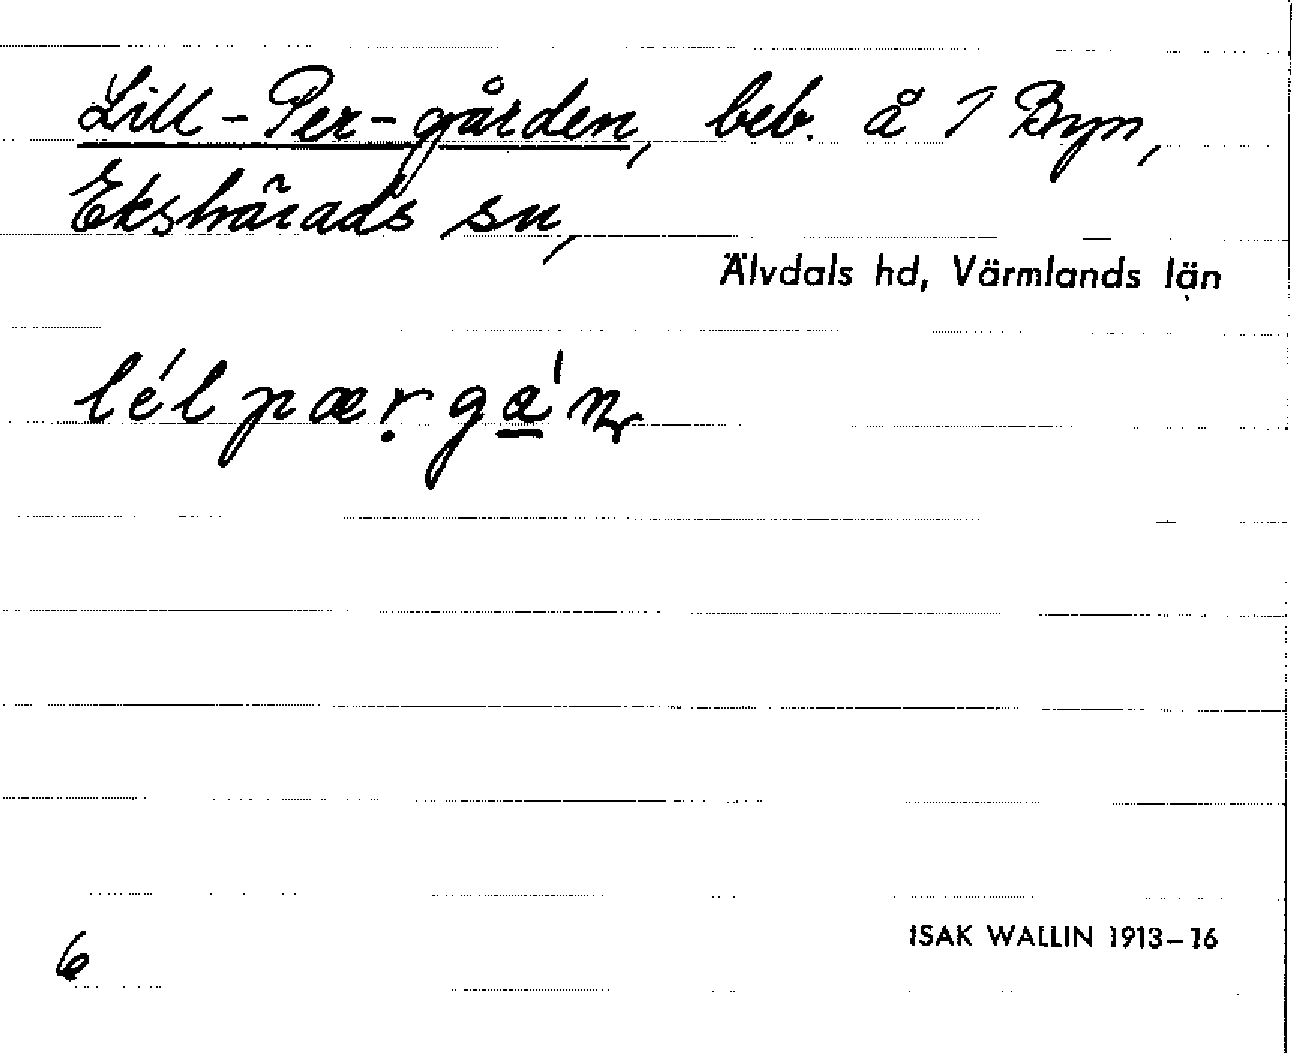 Lill-Per-gården, beb. å 1 Byn,
Ekshärads sn,
Älvdals hd, Värmlands län
lélpæṛga̲ʹn
6
ISAK WALLIN 1913–16